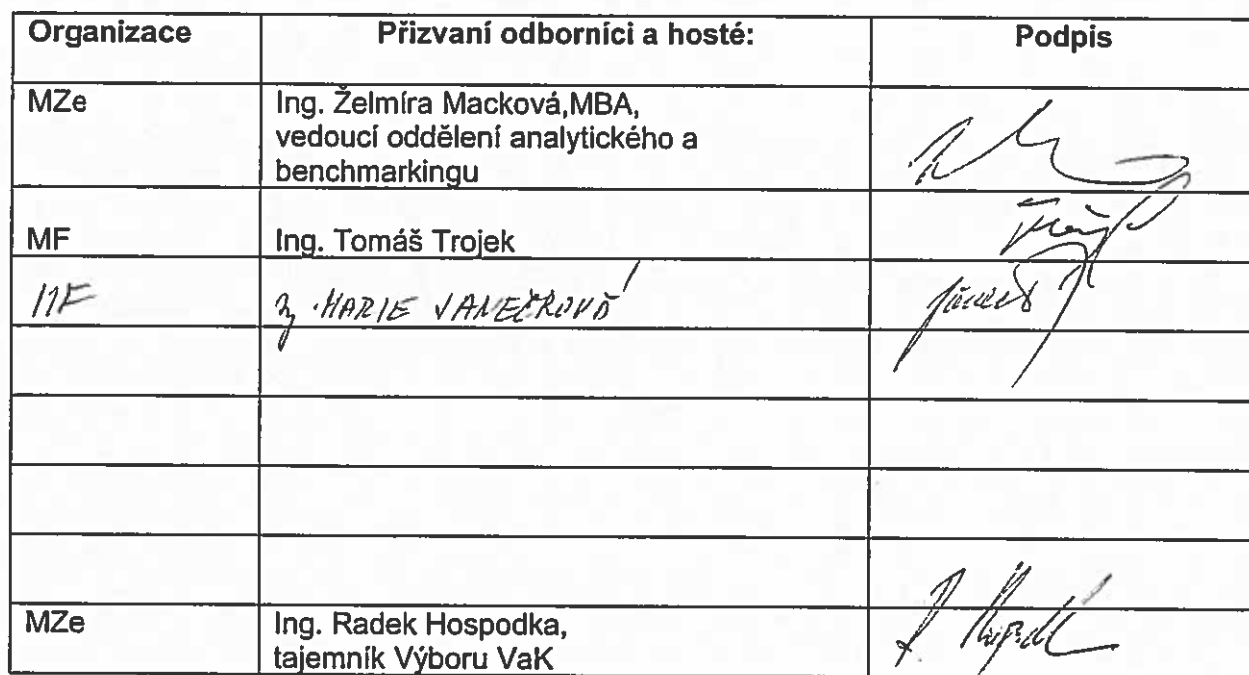 Organizace Přizvaní odborníci a hosté: Podpis
MZe Ing. Želmíra Macková,MBA,
vedoucí oddělení analytického a
benchmarkingu
MF Ing. Tomáš Trojek
MF MARIE JANEČKOVÁ
MZe Ing. Radek Hospodka,
tajemník Výboru VaK